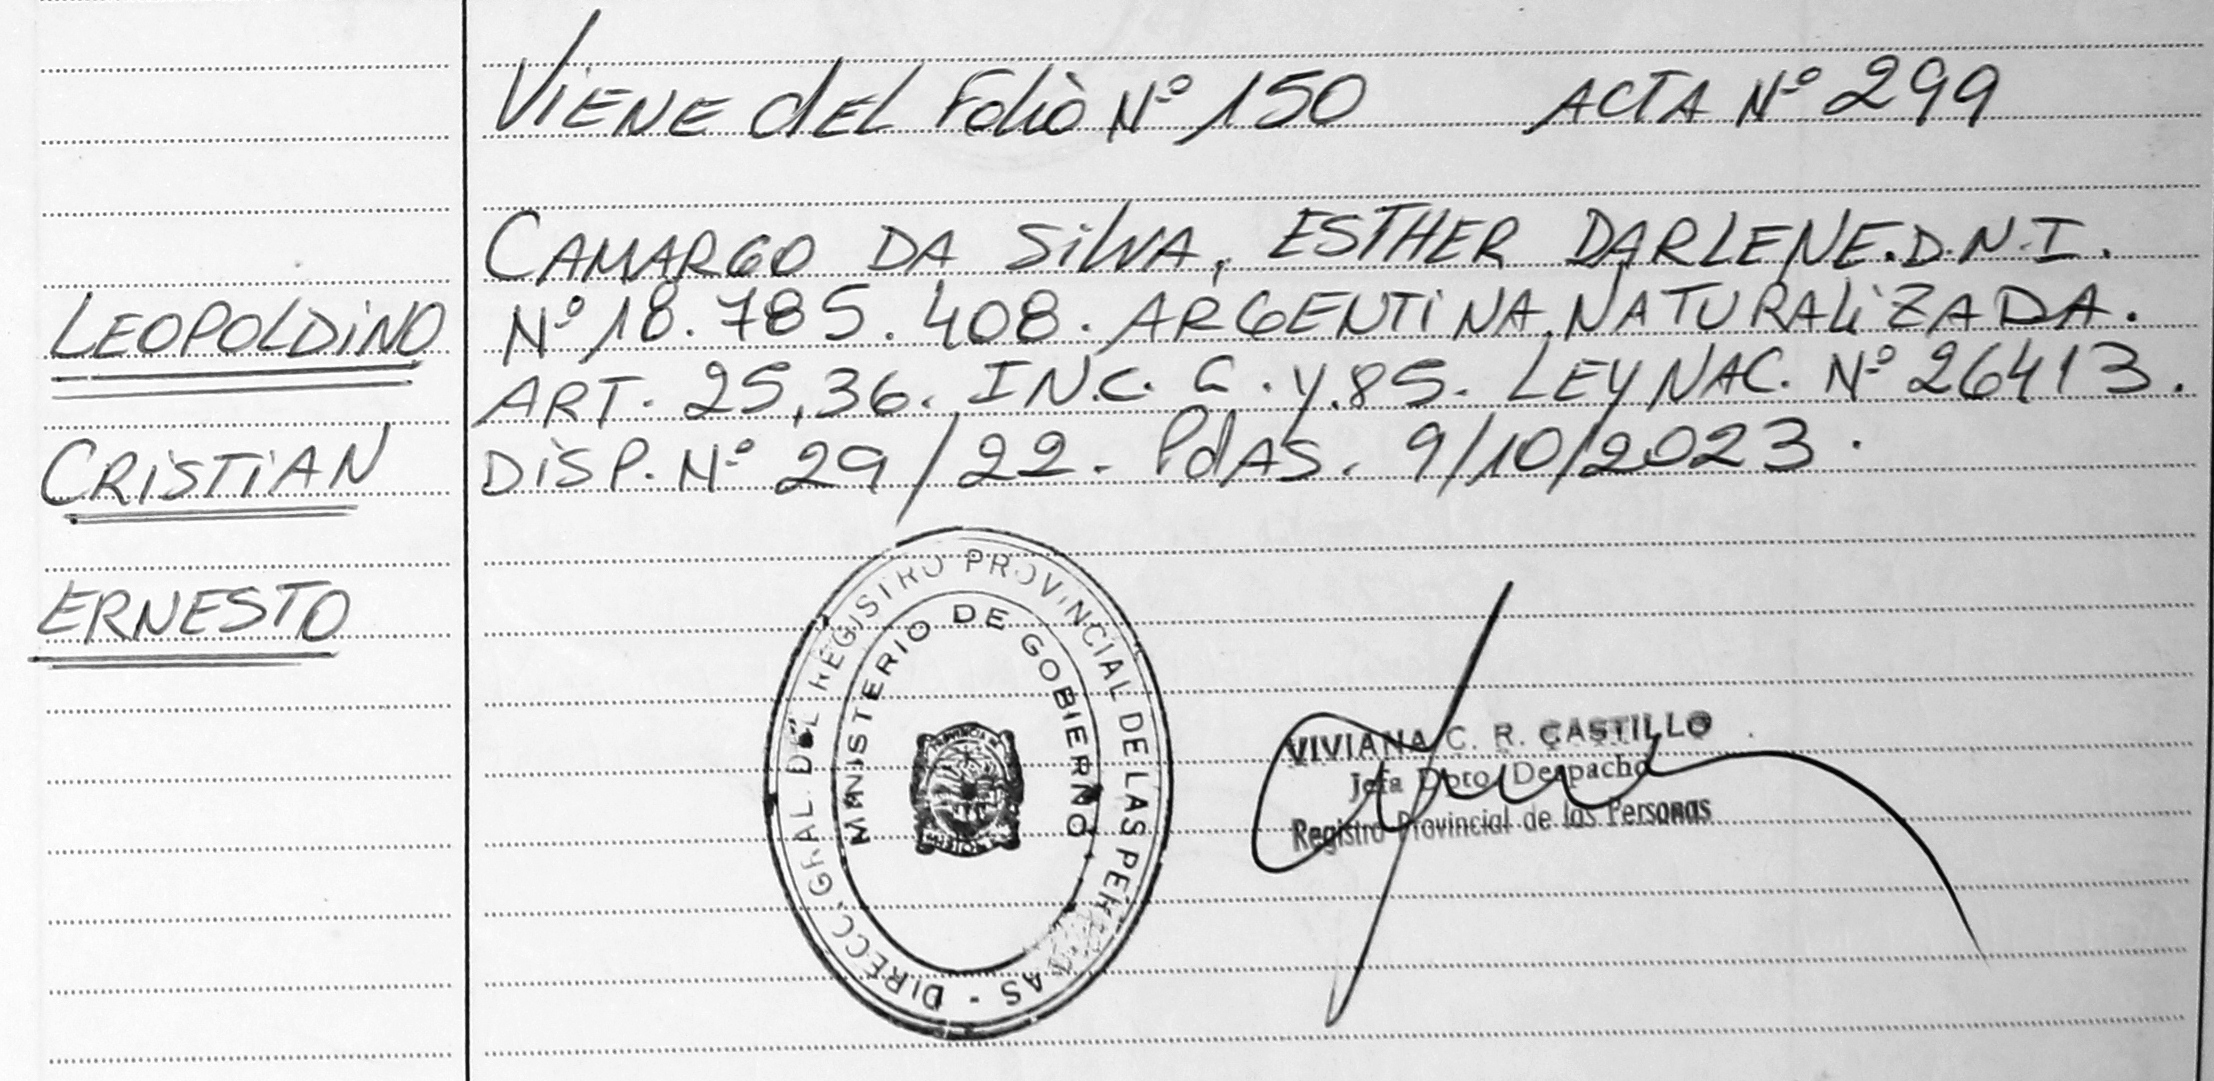 Viene del Folio Nº 150 ACTA Nº 299
CAMARGO DA SilVA, ESTHER DARLENE. D.N.I.
LEOPOLDiNO
Nº 18.785.408. ARGENTiNA, NATURALiZADA.
ART. 25, 36. INC. C. y 85. LEY NAC. Nº 26413.
CRiSTiAN
DiSP. Nº 29/22. PdAS. 9/10/2023.
ERNESTO
DIRECC. GRAL. DEL REGISTRO PROVINCIAL DE LAS PERSONAS
MINISTERIO DE GOBIERNO
VIVIANA C. R. CASTILLO
Jefa Dpto. Despacho
Registro Provincial de las Personas